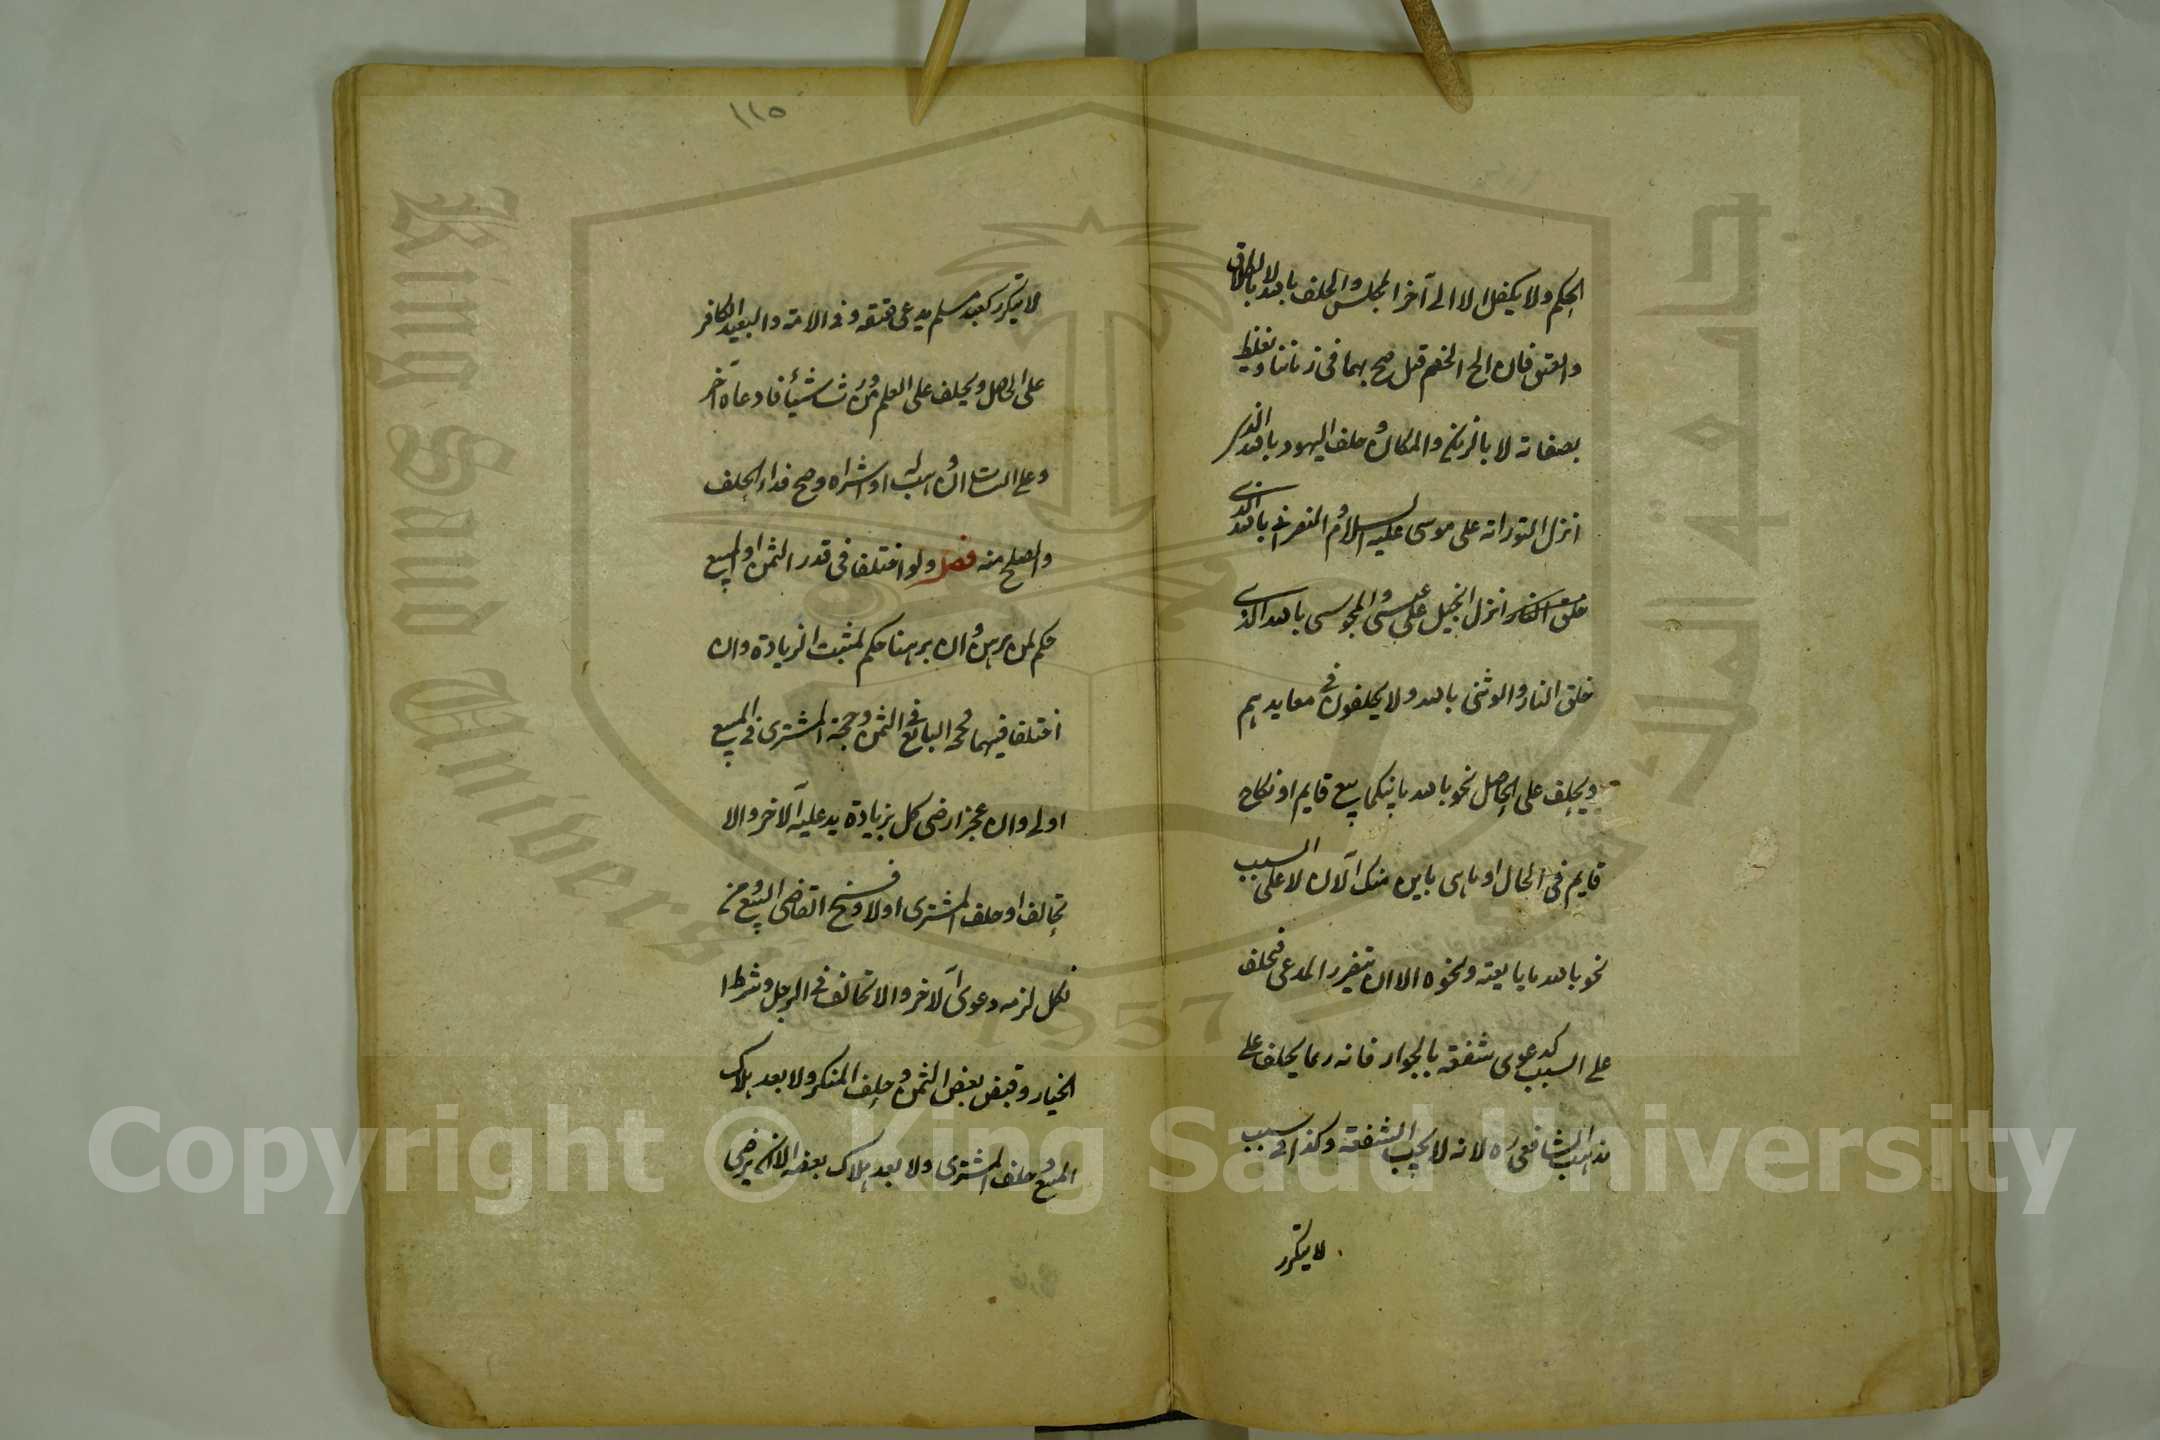 الحكم ولا يكفل الا الى آخر المجلس والحلف بالله لا بالطلاق
والعتق فان الح الخصم قيل صح بهما فى زماننا ويغلظ
بصفاته لا بالزمان والمكان وحلف اليهود بالله الذى
انزل التوراة على موسى عليه السلام والنصرانى بالله الذى
انزل انجيل على عيسى والمجوسى بالله الذى
خلق النار والوثنى بالله ولا يحلفون فى معابدهم
ويحلف على الحاصل نحو بالله ما بينكما بيع قايم او نكاح
قايم فى الحال او ما هى باين منك الآن لا على السبب
نحو بالله ما بايعته ونحوه الا ان يتضرر المدعى فيحلف
على السبب كدعوى شفعة بالجوار فانه ربما يحلف على
مذهب الشافعى ره لانه لا يجب الشفعة وكذا فى سبب
لا يتكرر
١١٥
لا يتكرر كعبد مسلم يدعى عتقه وفى الامة والعبد الكافر
على الحاصل ويحلف على العلم من ورث شيئا فادعاه آخر
وعلى البتات ان وهب له او اشتراه وصح فداء الحلف
والصلح منه فصل ولو اختلفا فى قدر الثمن او المبيع
حكم لمن برهن وان برهنا حكم لمثبت الزيادة وان
اختلفا فيهما فحجة البائع فى الثمن وحجة المشترى فى المبيع
اولى وان عجزا رضى كل بزيادة يدعيه الآخر والا
تحالفا وحلف المشترى اولا وفسخ القاضى البيع ومن
نكل لزمه دعوى الآخر ولا تحالف فى الاجل وشرط
الخيار وقبض بعض الثمن وحلف المنكر ولا بعد هلاك
المبيع وحلف المشترى ولا بعد هلاك بعضه الا ان يرضى
King Saud University
جامعة الملك
1957
Copyright © King Saud University